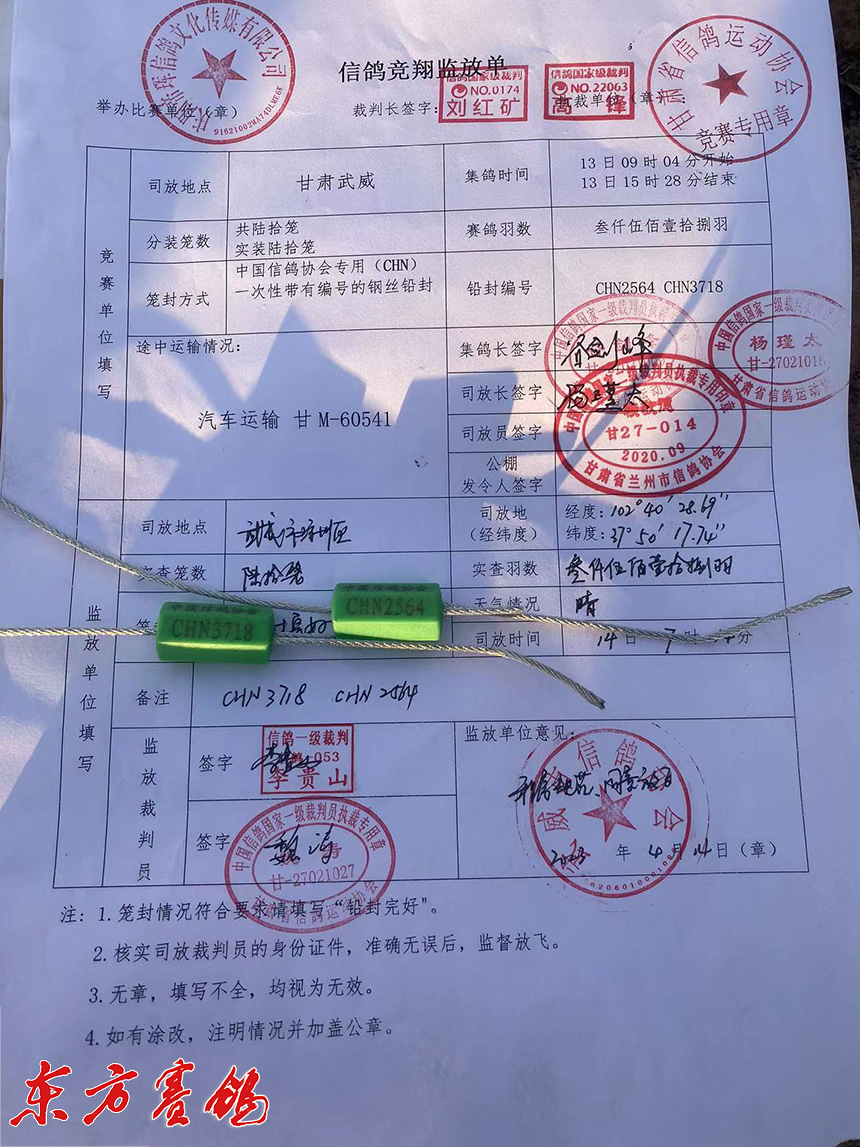 信鸽竞翔监放单
举办比赛单位（章） 裁判长签字： 裁单位（章）：
信鸽文化传媒有限公司
91621002MA74DLME6K
信鸽国家级裁判
NO.0174
刘红矿
信鸽国家级裁判
NO.22063
高 锋
甘肃省信鸽运动协会
竞赛专用章
竞赛单位填写
司放地点 甘肃武威 集鸽时间 13日09时04分开始
13日15时28分结束
分装笼数 共陆拾笼
实装陆拾笼
赛鸽羽数 叁仟伍佰壹拾捌羽
笼封方式 中国信鸽协会专用（CHN）
一次性带有编号的钢丝铅封
铅封编号 CHN2564 CHN3718
途中运输情况：
汽车运输 甘M-60541
集鸽长签字
司放长签字
司放员签字
公棚
发令人签字
中国信鸽国家一级裁判员执裁专用章
杨瑾太
甘-2702101
甘肃省信鸽运动
裁判员执裁专用印章
甘27-014
2020.09
甘肃省兰州市信鸽协会
监放单位填写
司放地点 武威市凉州区 司放地
（经纬度）
经度：102°40′28.69″
纬度：37°50′17.74″
实查笼数 陆拾笼 实查羽数 叁仟伍佰壹拾捌羽
天气情况 晴
司放时间 14日 7时 分
中国信鸽协会
CHN3718
中国信鸽协会
CHN2564
备注 CHN3718 CHN2564
监放裁判员
签字
信鸽一级裁判
053
李贵山
签字 魏涛
中国信鸽国家一级裁判员执裁专用章
甘-27021027
甘肃省信鸽运动协会
监放单位意见：
符合规范 同意放飞
威 信鸽 会
2023年4月14日（章）
注：1.笼封情况符合要求请填写“铅封完好"。
2.核实司放裁判员的身份证件，准确无误后，监督放飞。
3.无章，填写不全，均视为无效。
4.如有涂改，注明情况并加盖公章。
东方赛鸽